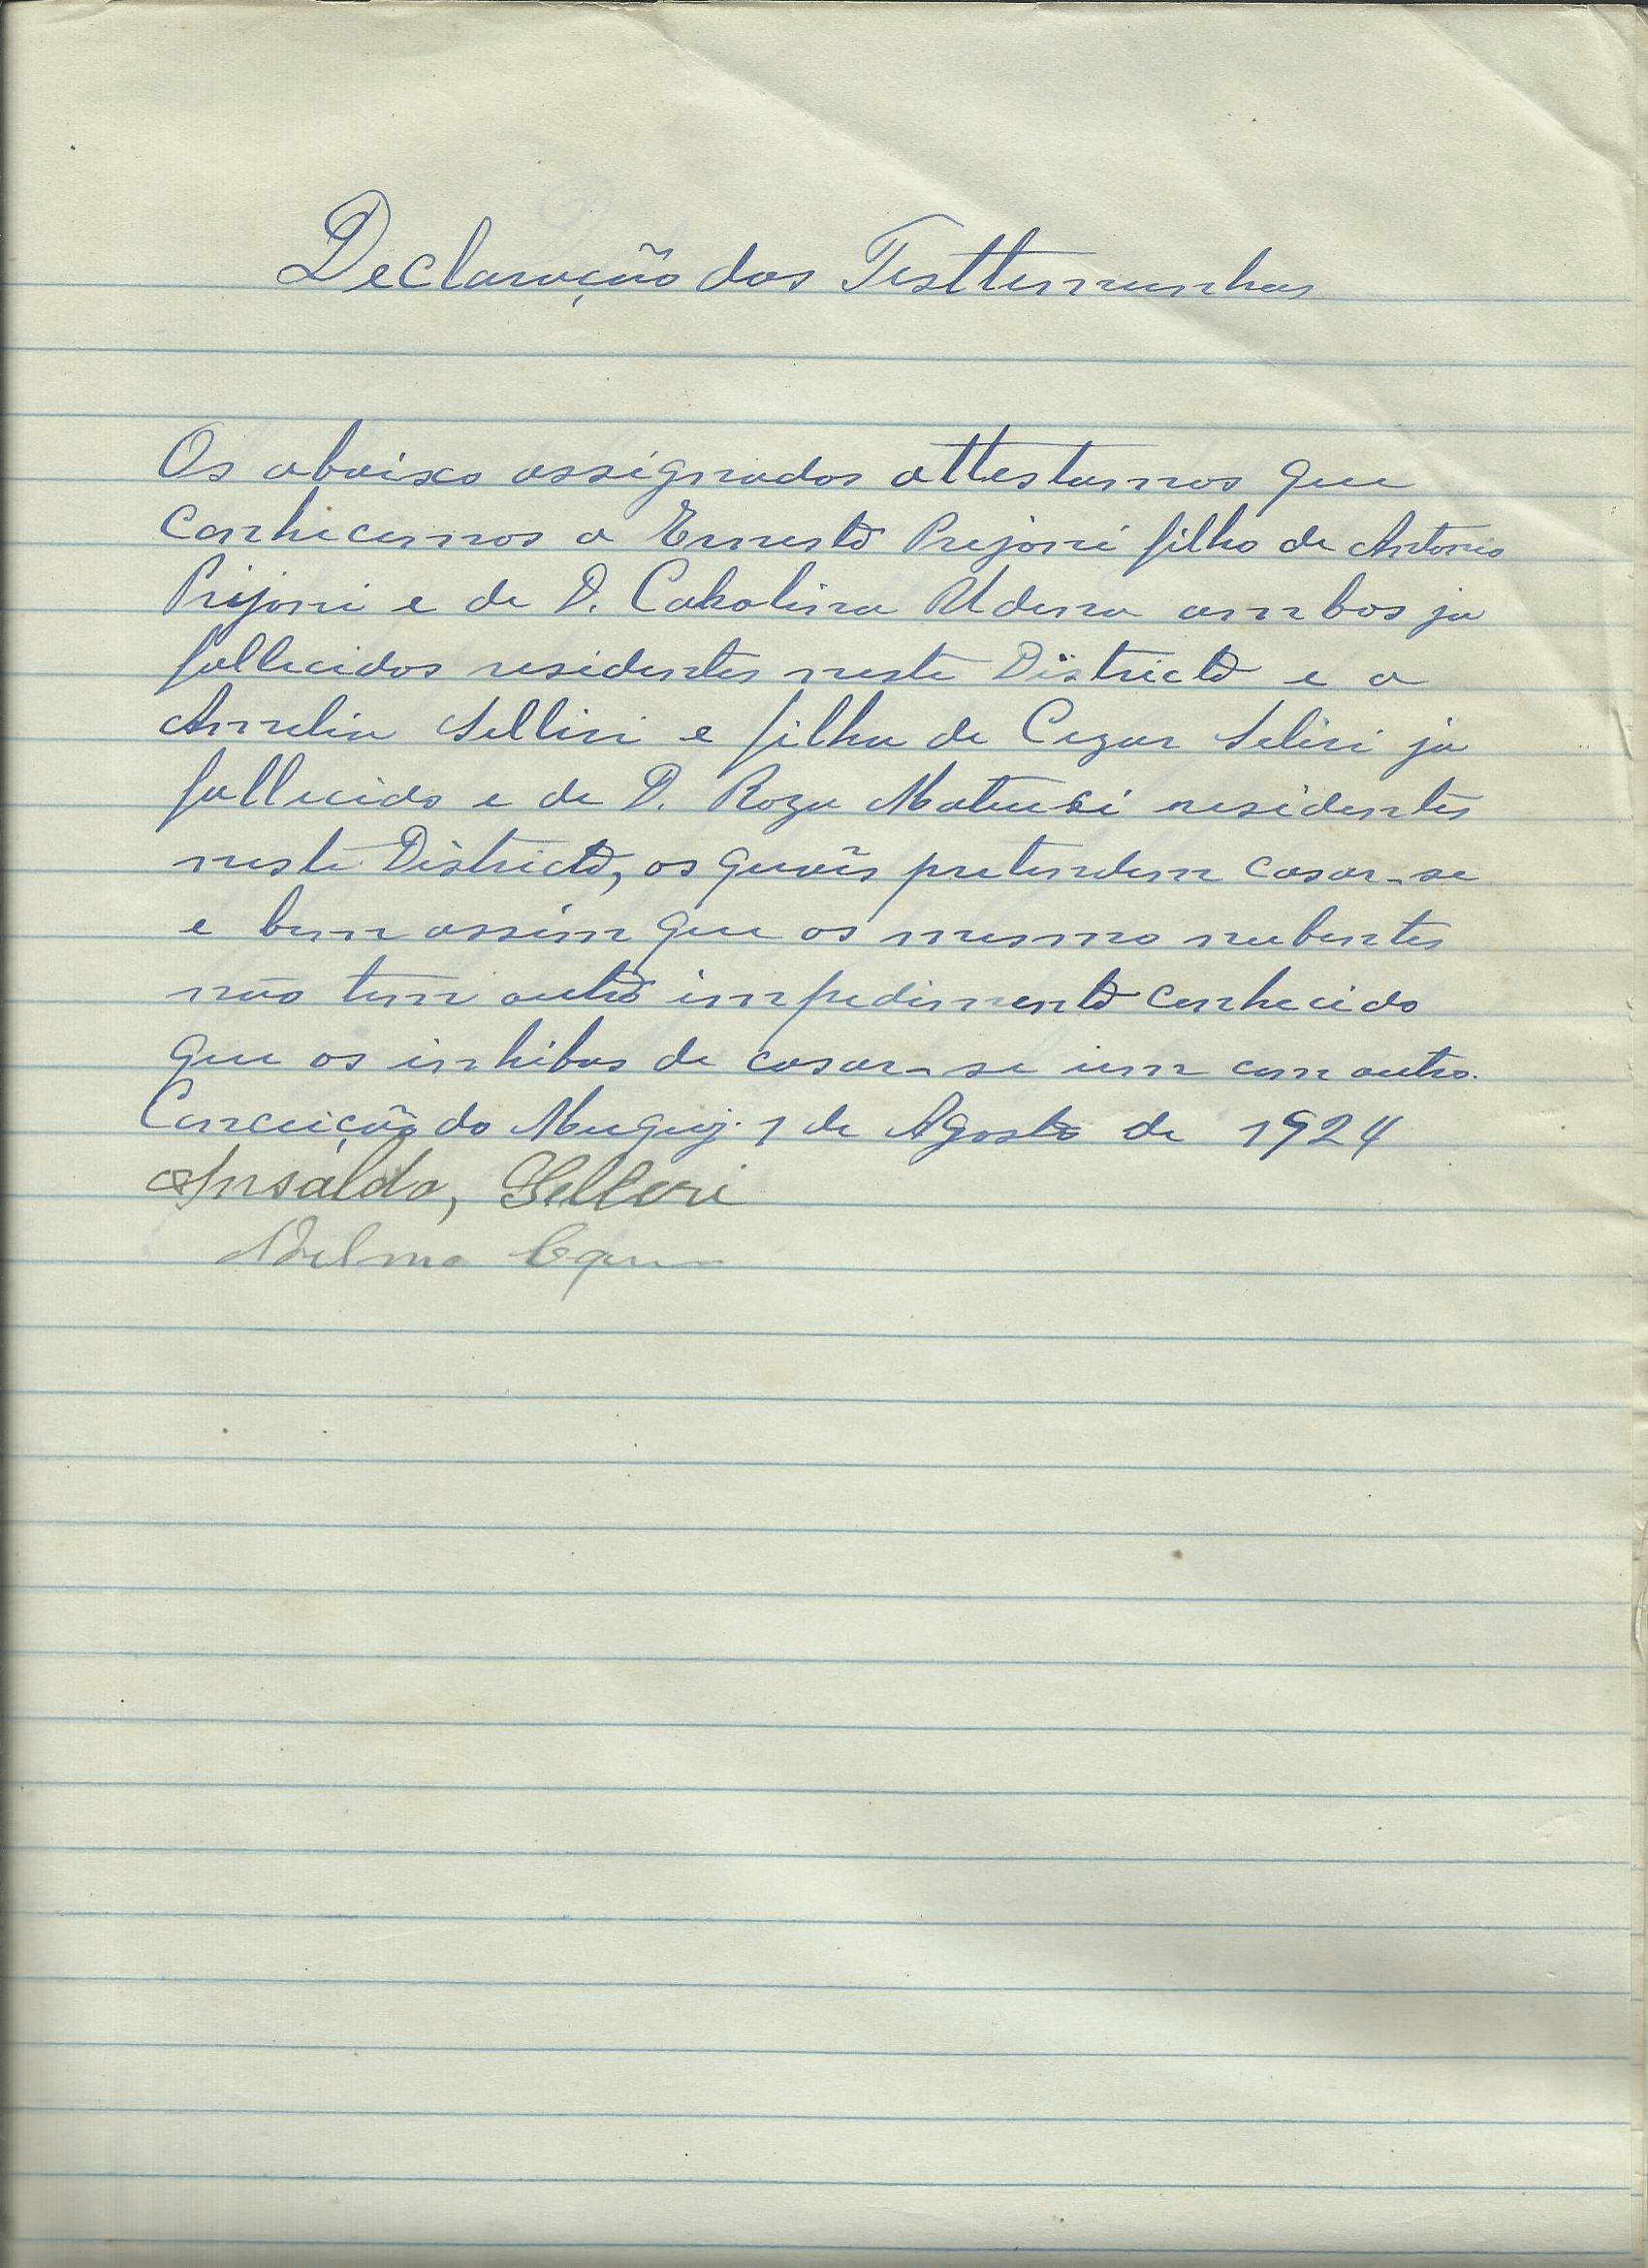 Declaração das Testtemunhas
Os abaixo assignados attestamos que
conhecemos a Ernesto Prijoni filho de Antonio
Prijoni e de D. Cakolina Udena ambos ja
fallecidos residentes neste Districto e a
Amelia Selliri e filha de Cezar Seliri ja
fallecido e de D. Roza residentes
neste Districto, os quaìs pretendem casar-se
e bem assim que os mesmo nubentes
não tem outro impedimento conhecido
que os inhibas de casar-se um com outro.
Conceição do Muquy. 1 de Agosto de 1924
Ansaldo, Selleri
Adelmo